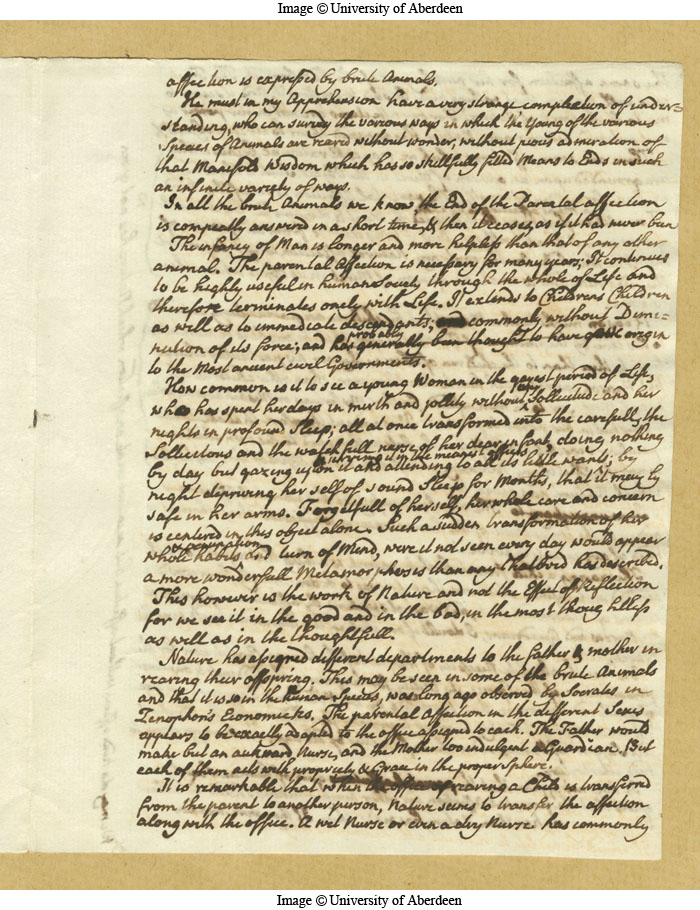 Image © University of Aberdeen
affection is expressed by brute Animals.
He must in my Apprehension have a very strange complexion of under=
standing, who can survey the various ways in which the Young of the various
Species of Animals are reared without wonder, without pious admiration of
that Manifold Wisdom which has so skillfully fitted Means to Ends in such
an infinite variety of ways.
In all the brute Animals we know, the End of the Parental affection
is compleatly answered in a short time, & then it ceases as if it had never been
The infancy of Man is longer and more helpless than that of any other
animal. The parental Affection is necessary for many years; It continues
to be highly useful in human Society through the whole of Life and
therefore terminates onely with Life. It extends to Childrens Children
as well as to immediate descendants; commonly without Dimi=
nution of its force; and has generally been thought to have origin
probably
to the Most ancient civil Governments.
How common is it to see a young Woman in the gayest period of Life,
who has spent her days in mirth and jollity without Sollicitude and her
nights in profound Sleep; all at once transformed into the carefull, the
Sollicitous and the watchfull nurse of her dear infant, doing nothing
by day but gazing upon it and attending to all its little wants; by
serving it in the meanest offices
night depriving her self of sound Sleep for Months, that it may ly
safe in her arms. Forgetfull of herself, her whole care and concern
is centered in this object alone. Such a sudden transformation of her
whole habits and turn of Mind, were it not seen every day would appear
& occupation
a more wonderfull Metamorphosis than any that Ovid has described.
This however is the work of Nature and not the Effect of Reflection
for we see it in the good and in the bad, in the most thoughtless
as well as in the thoughtfull.
Nature has assigned different departments to the father & mother in
rearing their offspring. This may be seen in some of the brute Animals
and that it is so in the human Species, was long ago observed by Socrates in
Zenophon's Economicks. The parental Affection in the different Sexes
appears to be exactly adapted to the office assigned to each. The Father would
make but an aukward Nurse, and the Mother too indulgent a Guardian. But
each of them acts with propriety & Grace in the proper Sphere.
It is remarkable that when the office of rearing a Child is transferrd
from the parent to another person, Nature seems to transfer the affection
along with the office. A wet Nurse or even a dry Nurse has commonly
Image © University of Aberdeen